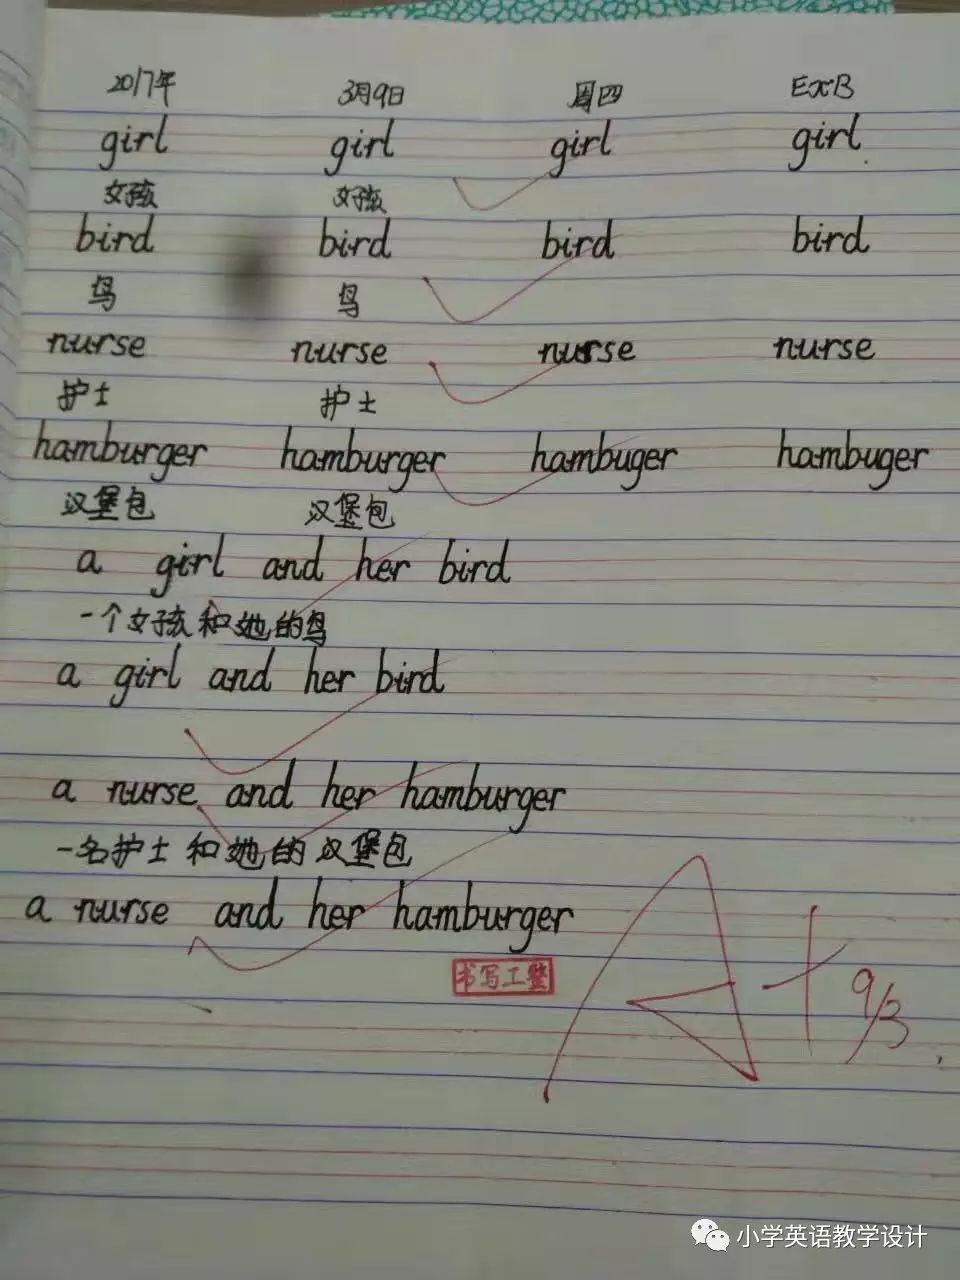 2017年 3月9日 周四 EXB
girl girl girl girl
女孩 女孩
bird bird bird bird
鸟 鸟
nurse nurse nurse nurse
护士 护士
hamburger hamburger hambuger hambuger
汉堡包 汉堡包
a girl and her bird
一个女孩和她的鸟
a girl and her bird
a nurse and her hamburger
一名护士和她的汉堡包
a nurse and her hamburger
书写工整
A+ 9/3
小学英语教学设计